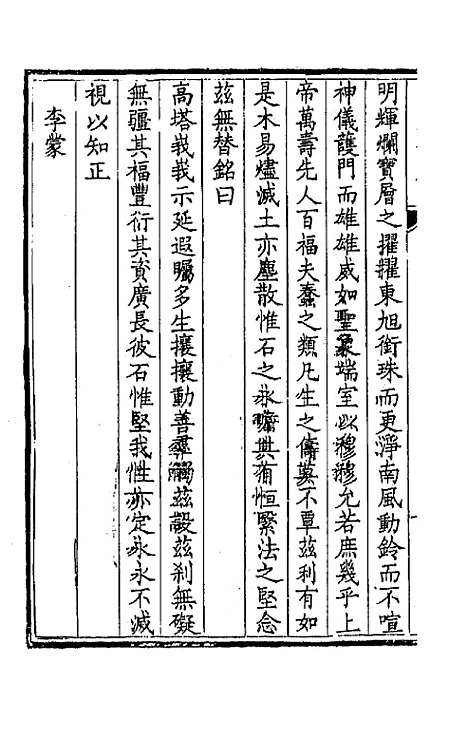 明輝爛寶層之擢糴東旭銜珠而更淨南風動鈴而不喧
神儀護門而雄雄威如聖象端室以穆穆允若庶幾乎上
帝萬壽先人百福夫蠢之類凡生之儔莫不覃茲利有如
是木易燼滅土亦塵散惟石之永曕其有恒繄法之堅念
茲無替銘曰
高塔峩峩示延遐矚多生攘攘動善尋觸茲設茲刹無礙
無疆其福豐衍其資廣長彼石惟堅我性亦定永永不滅
視以知正
李蒙